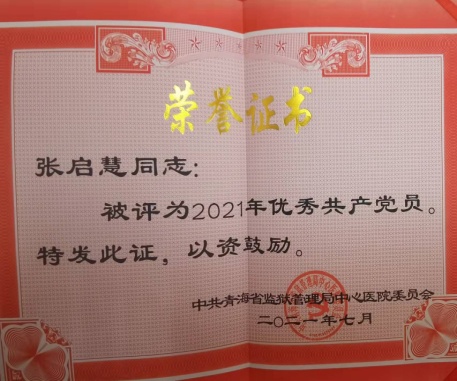 荣誉证书
张启慧同志:
被评为2021年优秀共产党员。
特发此证，以资鼓励。
中共青海省监狱管理局中心医院委员会
二〇二一年七月